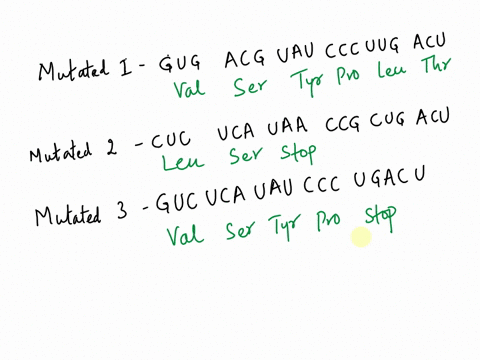 Mutated 1 - GUG ACG UAU CCC UUG ACU
Val Ser Tyr Pro Leu Thr
Mutated 2 - CUC UCA UAA CCG CUG ACU
Leu Ser Stop
Mutated 3 - GUC UCA UAU CCC UGAC U
Val Ser Tyr Pro Stop